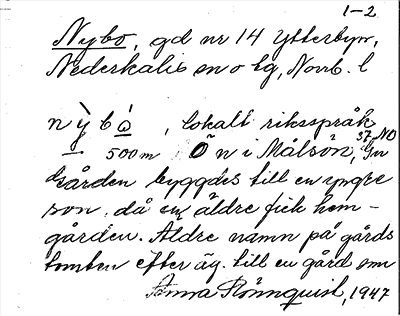 1-2
Nybo, gd nr 14 Ytterbyn,
Nederkalix sn o lg, Norrb. l
nỳbó, lokalt riksspråk
500 m Ö n i Målsön, 37 NO
Gården byggdes till en yngre
son, då en äldre fick hem-
gården. Äldre namn på gårds
tomten efter äg. till en gård som
Anna Rönnquist, 1947